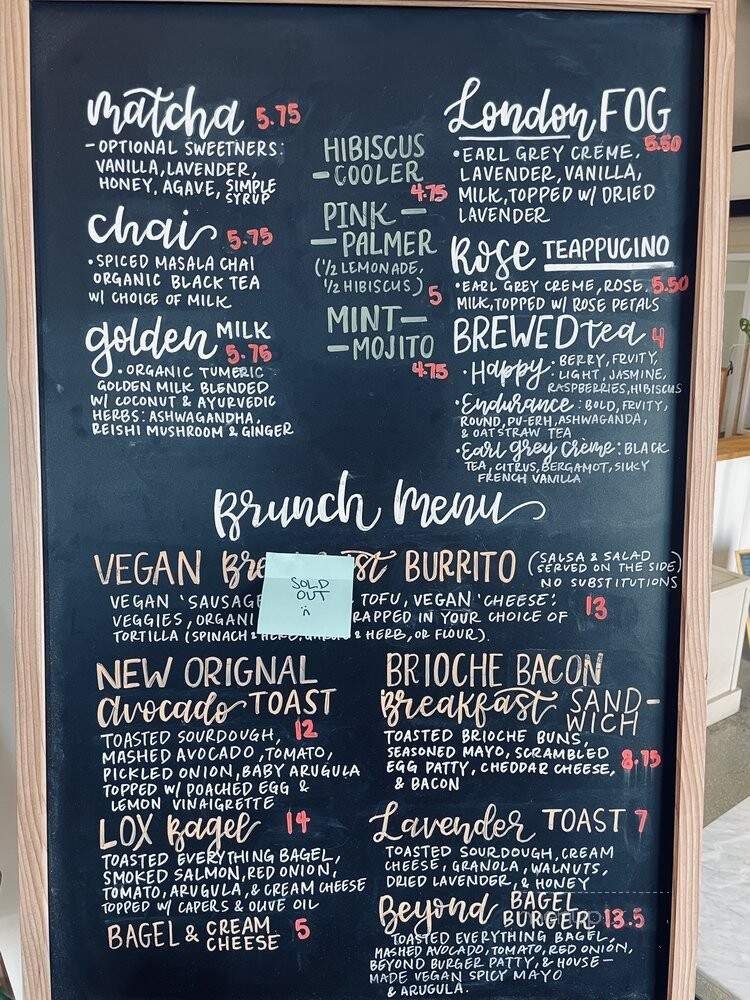 matcha 5.75
- OPTIONAL SWEETNERS:
VANILLA, LAVENDER,
HONEY, AGAVE, SIMPLE
SYRUP
chai 5.75
• SPICED MASALA CHAI
ORGANIC BLACK TEA
W/ CHOICE OF MILK
golden MILK
5.75
• ORGANIC TUMERIC
GOLDEN MILK BLENDED
W/ COCONUT & AYURVEDIC
HERBS: ASHWAGANDHA,
REISHI MUSHROOM & GINGER
HIBISCUS
- COOLER
4.75
PINK -
- PALMER
(1/2 LEMONADE,
1/2 HIBISCUS) 5
MINT -
- MOJITO
4.75
London FOG
5.50
• EARL GREY CRÈME,
LAVENDER, VANILLA,
MILK, TOPPED W/ DRIED
LAVENDER
Rose TEAPPUCINO
• EARL GREY CREME, ROSE, 5.50
MILK, TOPPED W/ ROSE PETALS
BREWED tea 4
• Happy: BERRY, FRUITY,
LIGHT, JASMINE,
RASPBERRIES, HIBISCUS
• Endurance: BOLD, FRUITY,
ROUND, PU-ERH, ASHWAGANDA,
& OATSTRAW TEA
• Earl grey Crème: BLACK
TEA, CITRUS, BERGAMOT, SILKY
FRENCH VANILLA
Brunch Menu
VEGAN BURRITO (SALSA & SALAD
SERVED ON THE SIDE)
NO SUBSTITUTIONS
SOLD
OUT
:(
VEGAN 'SAUSAGE TOFU, VEGAN 'CHEESE'. 13
VEGGIES, IN YOUR CHOICE OF
TORTILLA (SPINACH & HERB, OR FLOUR).
NEW ORIGNAL
avocado TOAST
TOASTED SOURDOUGH, 12
MASHED AVOCADO, TOMATO,
PICKLED ONION, BABY ARUGULA
TOPPED W/ POACHED EGG &
LEMON VINAIGRETTE
LOX Bagel 14
TOASTED EVERYTHING BAGEL,
SMOKED SALMON, RED ONION,
TOMATO, ARUGULA, & CREAM CHEESE
TOPPED W/ CAPERS & OLIVE OIL
BAGEL & CREAM
CHEESE 5
BRIOCHE BACON
Breakfast SAND-
WICH
TOASTED BRIOCHE BUNS,
SEASONED MAYO, SCRAMBLED
EGG PATTY, CHEDDAR CHEESE, 8.75
& BACON
Lavender TOAST 7
TOASTED SOURDOUGH, CREAM
CHEESE, GRANOLA, WALNUTS,
DRIED LAVENDER, & HONEY
Beyond BAGEL
BURGER 13.5
TOASTED EVERYTHING BAGEL,
MASHED AVOCADO, TOMATO, RED ONION,
BEYOND BURGER PATTY, & HOUSE-
MADE VEGAN SPICY MAYO
& ARUGULA.